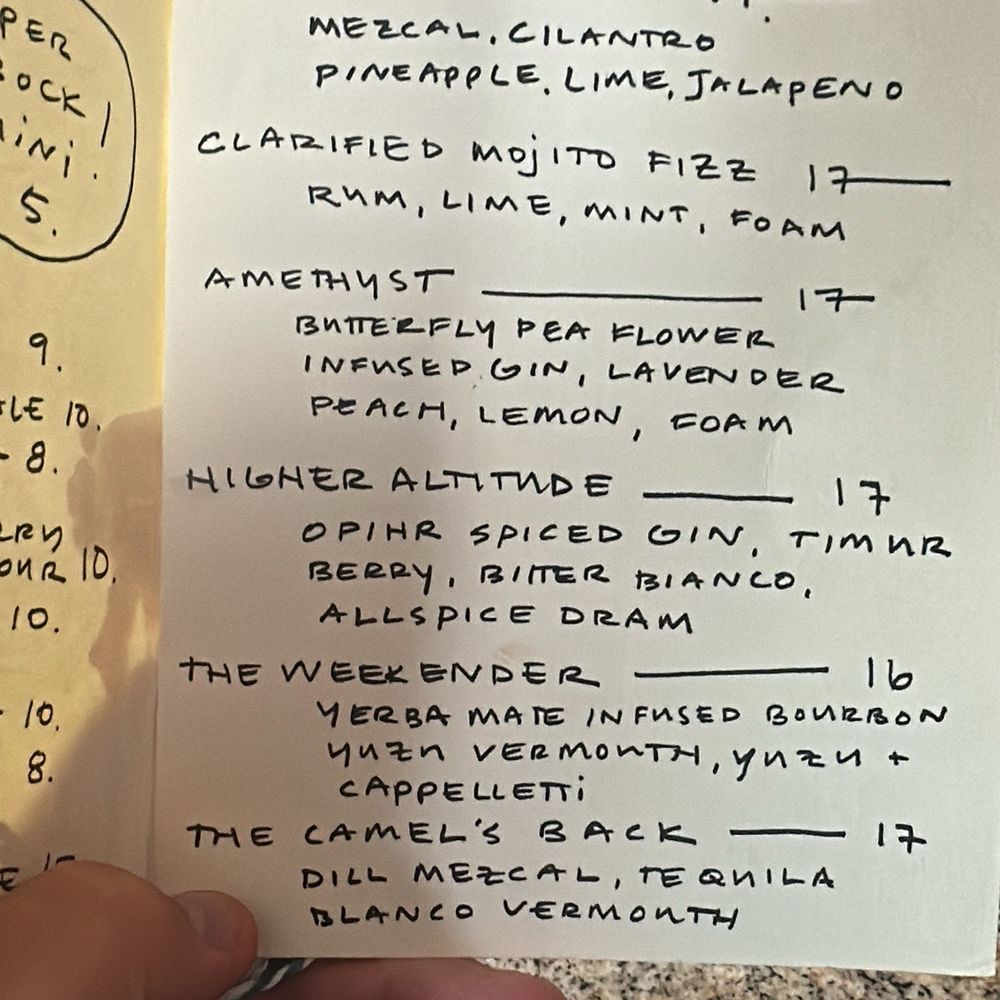 MEZCAL, CILANTRO
PINEAPPLE, LIME, JALAPENO
CLARIFIED MOJITO FIZZ 17
RUM, LIME, MINT, FOAM
AMETHYST 17
BUTTERFLY PEA FLOWER
INFUSED GIN, LAVENDER
PEACH, LEMON, FOAM
HIGHER ALTITUDE 17
OPIHR SPICED GIN, TIMUR
BERRY, BITTER BIANCO,
ALLSPICE DRAM
THE WEEKENDER 16
YERBA MATE INFUSED BOURBON
YUZU VERMOUTH, YUZU +
CAPPELLETTI
THE CAMEL'S BACK 17
DILL MEZCAL, TEQUILA
BLANCO VERMOUTH
5.
9.
10.
8.
10.
10.
10.
8.